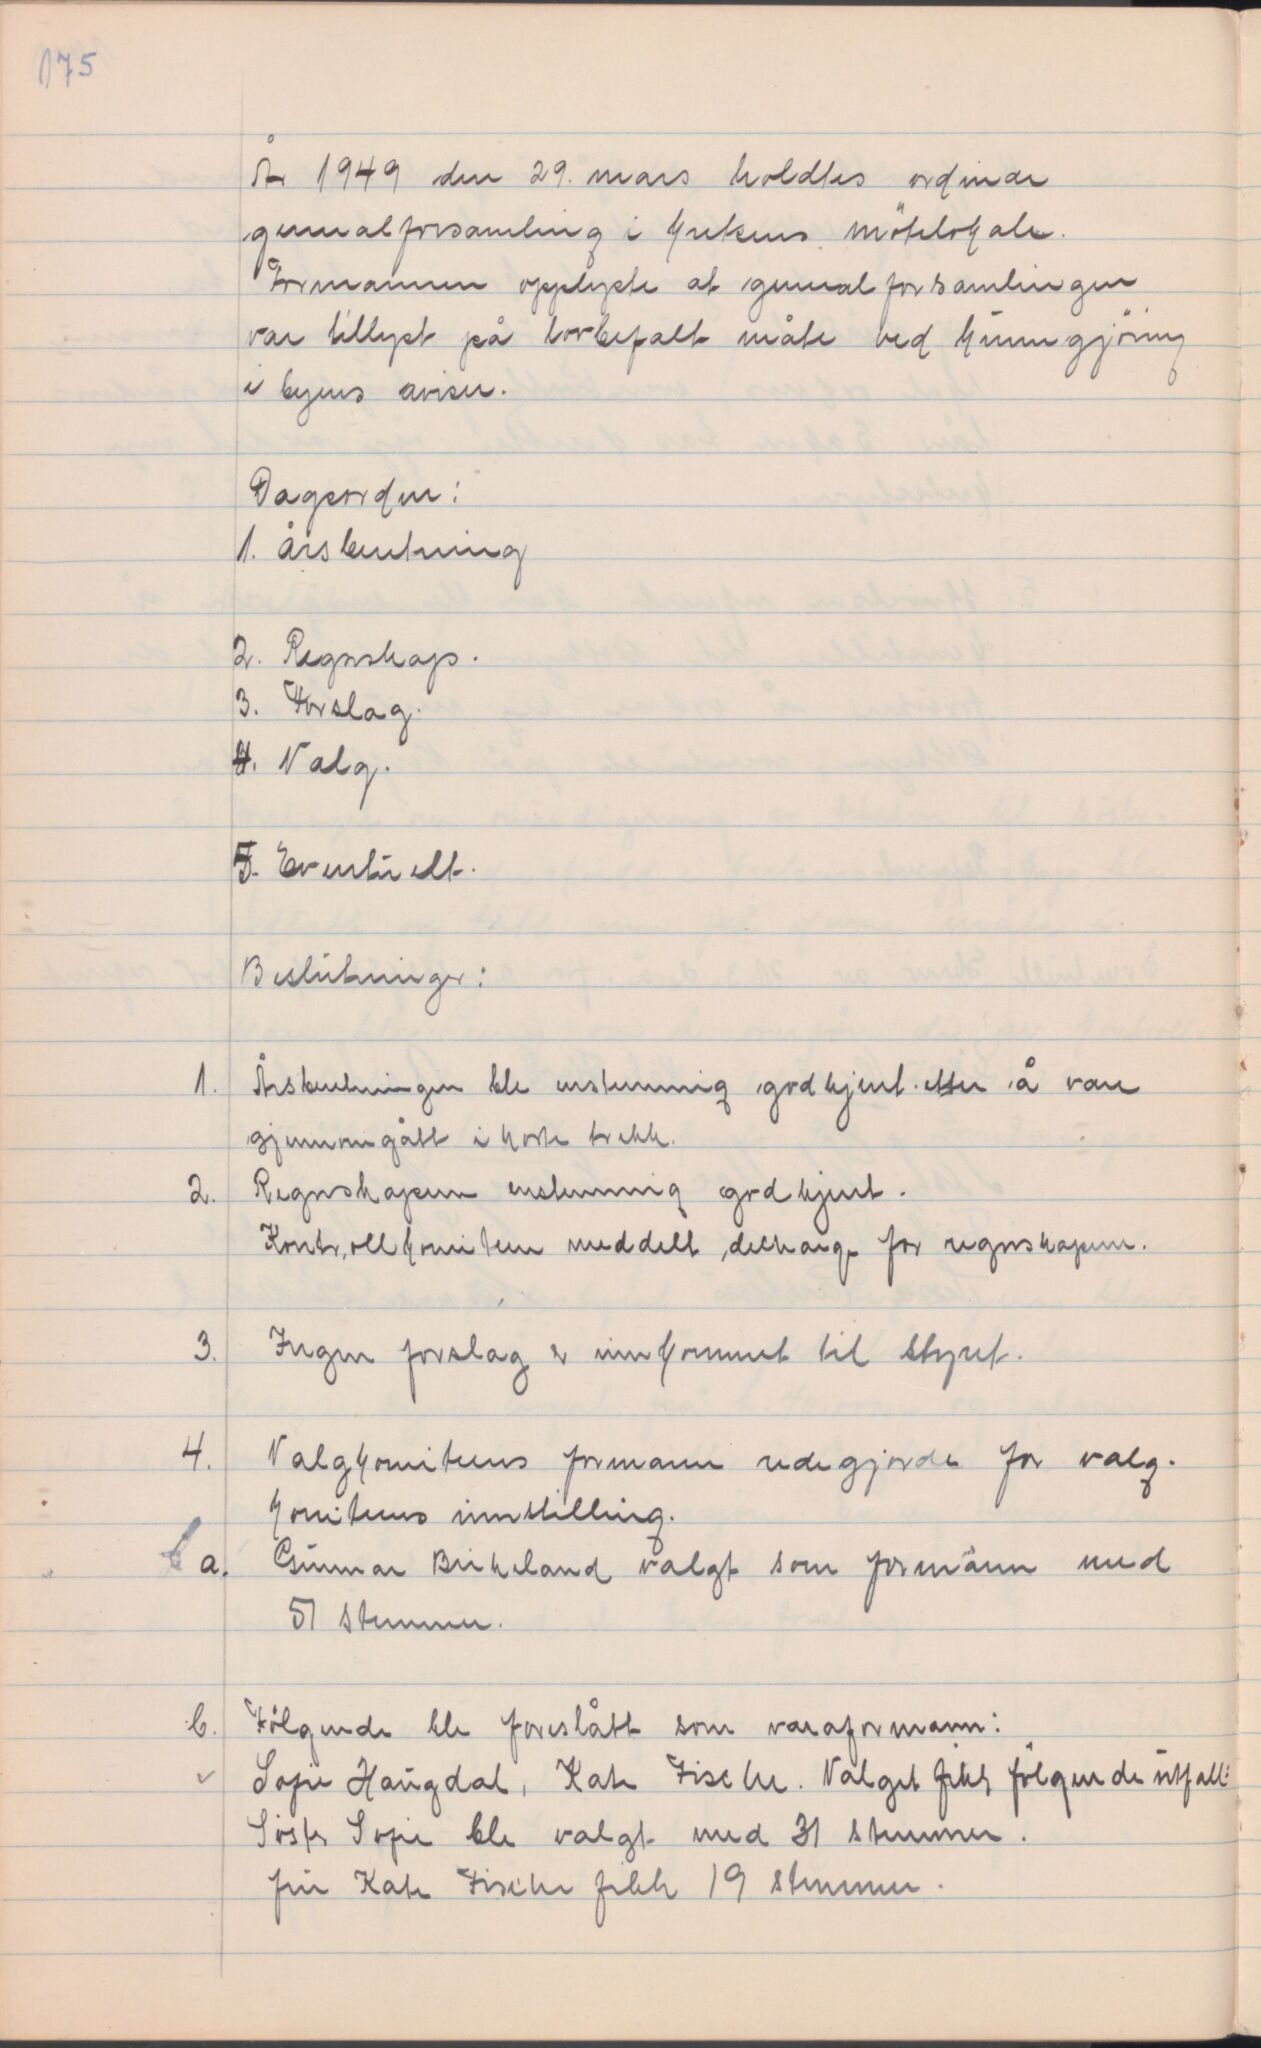 175
År 1949 den 29. mars holdtes ordinær
generalforsamling i kretsens møtelokale.
Formannen opplyste at generalforsamlingen
var tillyst på lovbefalt måte ved kunngjøring
i byens aviser.
Dagsorden:
1. Årsberetning
2. Regnskap.
3. Forslag.
4. Valg.
5. Eventuelt.
Beslutninger:
1. Årsberetningen ble enstemmig godkjent etter å være
gjennomgått i korte trekk.
2. Regnskapene enstemmig godkjent.
Kontrollkomiteen meddelt decharge for regnskapene.
3. Ingen forslag er innkommet til styret.
4. Valgkomiteens formann redegjorde for valg-
komiteens innstilling.
a. Gunnar Birkeland valgt som formann med
51 stemmer.
b. Følgende ble foreslått som varaformann:
Sofie Haugdal, Kate Fischer. Valget fikk følgende utfall:
Søster Sofie ble valgt med 31 stemmer.
fru Kate Fischer fikk 19 stemmer.